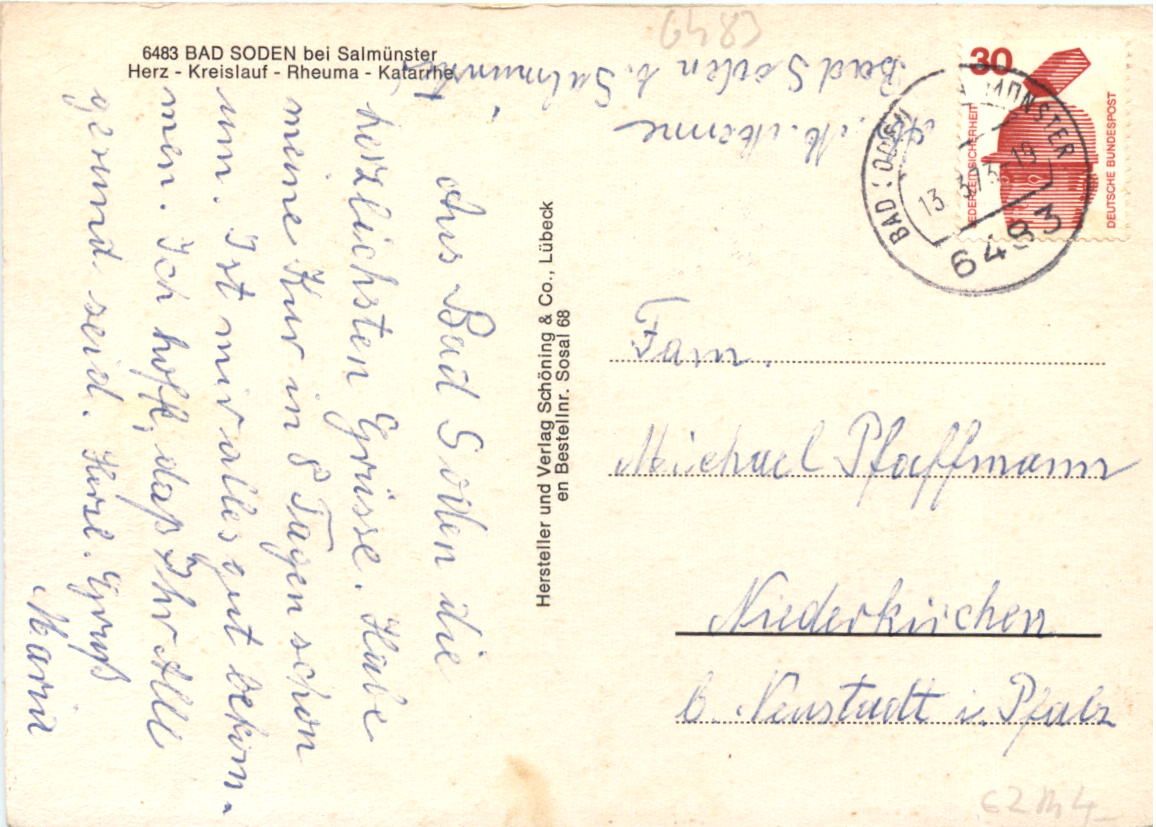 6483 BAD SODEN bei Salmünster
Herz - Kreislauf - Rheuma - Katarrhe
Aus Bad Soden die
herzlichsten Grüsse. Habe
meine Kur in 8 Tagen schon
um. Ist mir alles gut bekom-
men. Ich hoffe, daß Ihr Alle
gesund seid. Herzl. Gruß
Maria
Hersteller und Verlag Schöning & Co., Lübeck
en Bestellnr. Sosal 68
6483
Bad Soden b. Salmünster
30
JEDERZEIT SICHERHEIT
DEUTSCHE BUNDESPOST
BAD SODEN
MÜNSTER
13
19
6483
Fam.
Michael Pfaffmann
Niederkirchen
b. Neustadt i. Pfalz